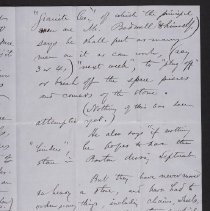 "Granite Co." of which the principal
are Mr. Bodwell & himself)
says he shall put as many
men on it as can work, (say
3 or 4,) "next week", to "plug off"
or break off the spare pieces
and corners of the stone.
(Nothing of this has been
attempted yet.)
He also says if nothing
hinders he hopes to have the
stone in Boston during September
But they have never moved
so heavy a stone, and have had to
order many things, including chains, wheels,